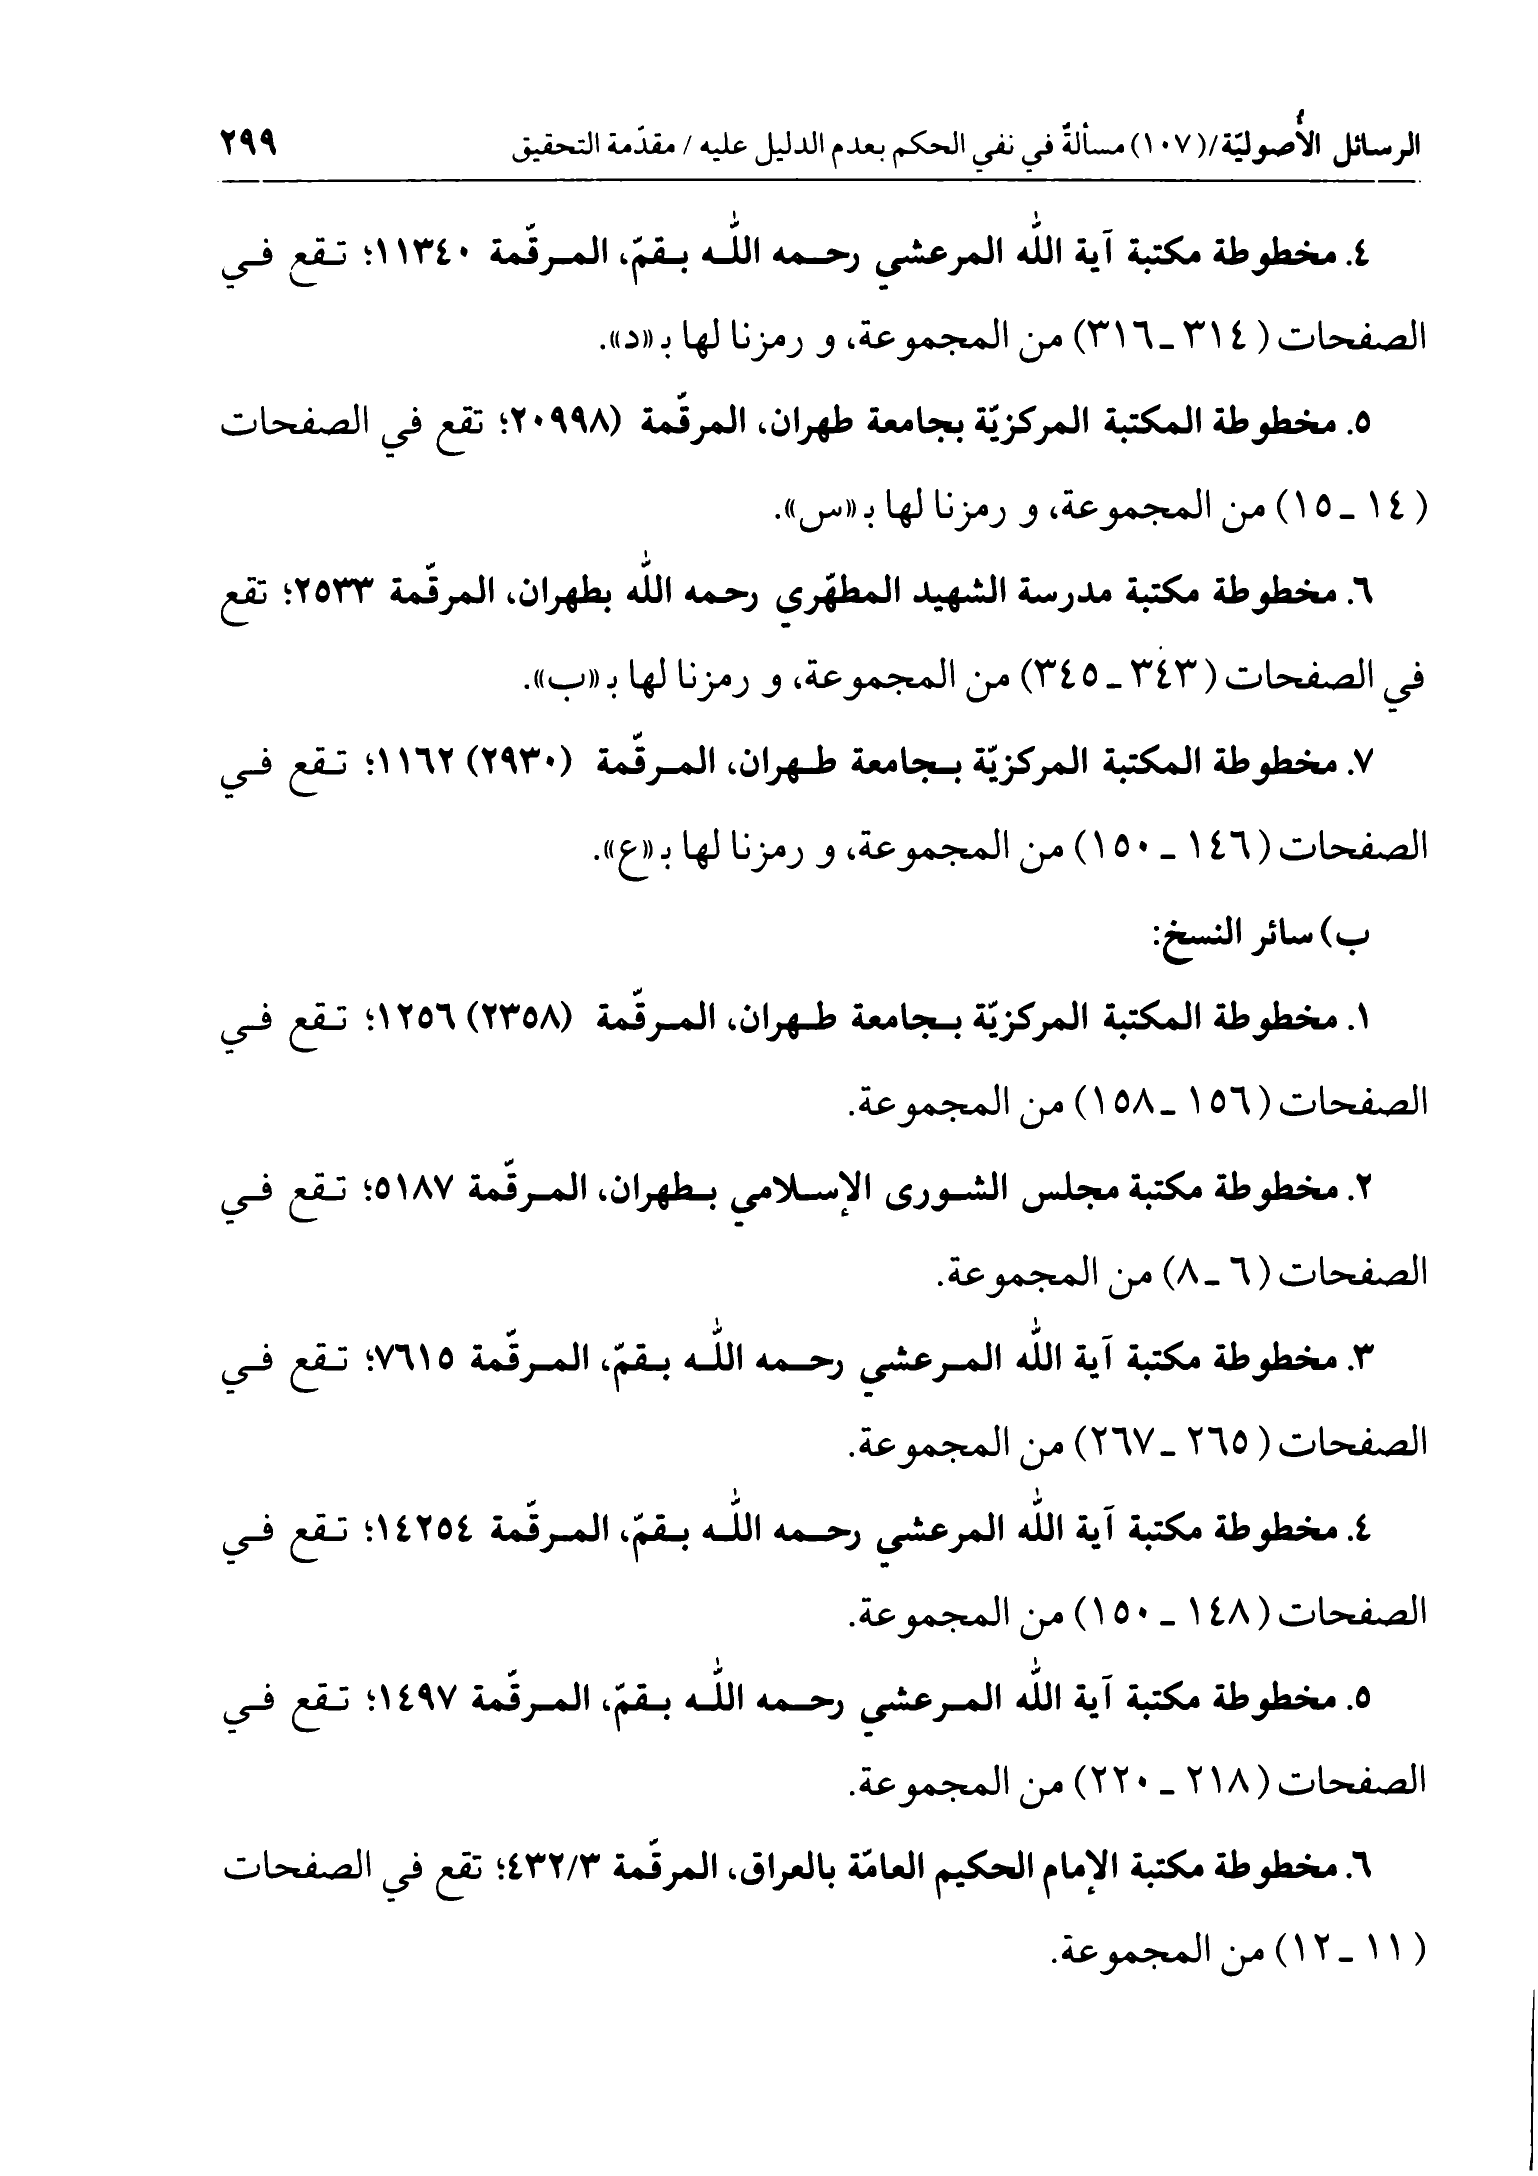 الرسائل الأُصوليّة/(١٠٧) مسألةٌ في نفي الحكم بعدم الدليل عليه / مقدّمة التحقيق ٢٩٩
٤. مخطوطة مكتبة آية اللّٰه المرعشي رحمه اللّٰه بقمّ، المرقّمة ١١٣٤٠؛ تقع في
الصفحات (٣١٤ ـ ٣١٦) من المجموعة، و رمزنا لها بـ«د».
٥. مخطوطة المكتبة المركزيّة بجامعة طهران، المرقّمة (٢٠٩٩٨؛ تقع في الصفحات
(١٤ ـ ١٥) من المجموعة، و رمزنا لها بـ«س».
٦. مخطوطة مكتبة مدرسة الشهيد المطهّري رحمه اللّٰه بطهران، المرقّمة ٢٥٣٣؛ تقع
في الصفحات (٣٤٣ ـ ٣٤٥) من المجموعة، و رمزنا لها بـ«ب».
٧. مخطوطة المكتبة المركزيّة بجامعة طهران، المرقّمة (٢٩٣٠) ١١٦٢؛ تقع في
الصفحات (١٤٦ ـ ١٥٠) من المجموعة، و رمزنا لها بـ«ع».
ب) سائر النسخ:
١. مخطوطة المكتبة المركزيّة بجامعة طهران، المرقّمة (٢٣٥٨) ١٢٥٦؛ تقع في
الصفحات (١٥٦ ـ ١٥٨) من المجموعة.
٢. مخطوطة مكتبة مجلس الشورى الإسلامي بطهران، المرقّمة ٥١٨٧؛ تقع في
الصفحات (٦ ـ ٨) من المجموعة.
٣. مخطوطة مكتبة آية اللّٰه المرعشي رحمه اللّٰه بقمّ، المرقّمة ٧٦١٥؛ تقع في
الصفحات (٢٦٥ ـ ٢٦٧) من المجموعة.
٤. مخطوطة مكتبة آية اللّٰه المرعشي رحمه اللّٰه بقمّ، المرقّمة ١٤٢٥٤؛ تقع في
الصفحات (١٤٨ ـ ١٥٠) من المجموعة.
٥. مخطوطة مكتبة آية اللّٰه المرعشي رحمه اللّٰه بقمّ، المرقّمة ١٤٩٧؛ تقع في
الصفحات (٢١٨ ـ ٢٢٠) من المجموعة.
٦. مخطوطة مكتبة الإمام الحكيم العامّة بالعراق، المرقّمة ٤٣٢/٣؛ تقع في الصفحات
(١١ ـ ١٢) من المجموعة.